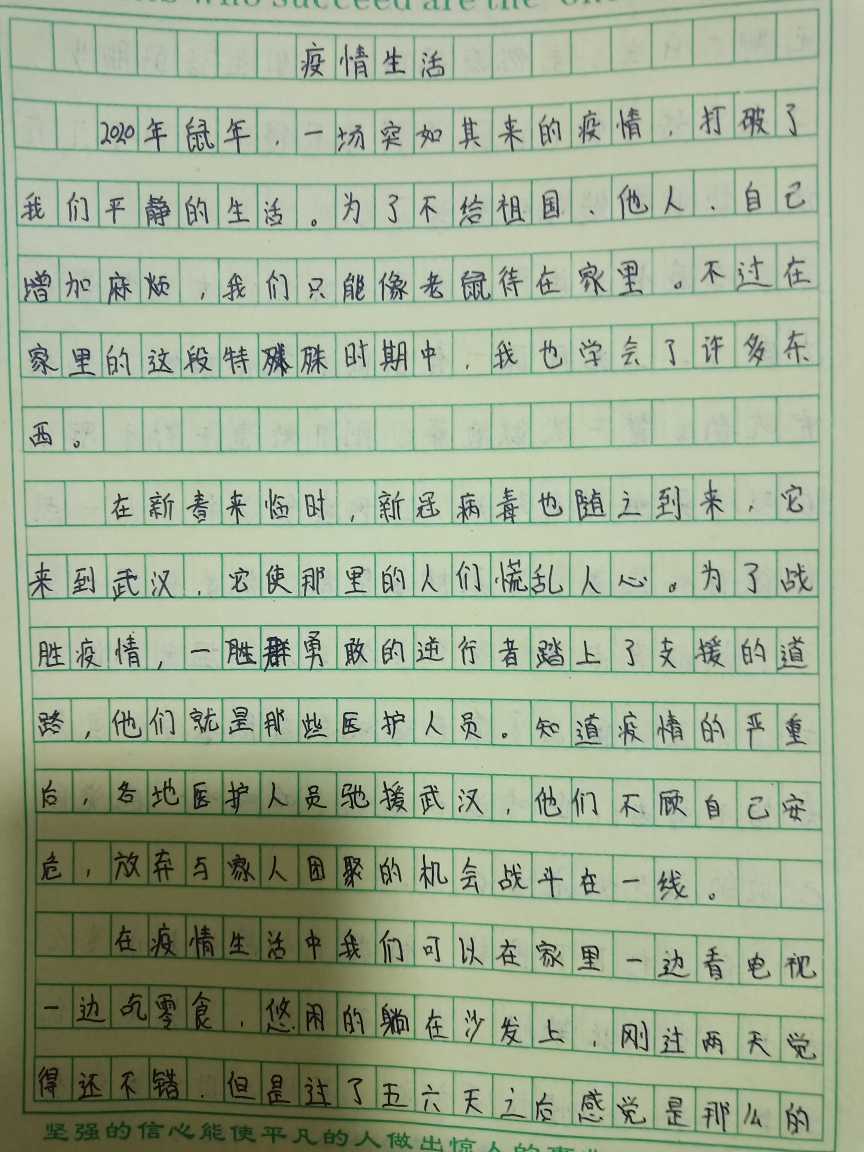 who succeed are the
疫情生活
2020年鼠年，一场突如其来的疫情，打破了
我们平静的生活。为了不给祖国、他人、自己
增加麻烦，我们只能像老鼠待在家里。不过在
家里的这段特殊时期中，我也学会了许多东
西。
在新春来临时，新冠病毒也随之到来，它
来到武汉，它使那里的人们慌乱人心。为了战
胜疫情，一群勇敢的逆行者踏上了支援的道
路，他们就是那些医护人员。知道疫情的严重
后，各地医护人员驰援武汉，他们不顾自己安
危，放弃与家人团聚的机会战斗在一线。
在疫情生活中我们可以在家里一边看电视
一边吃零食，悠闲的躺在沙发上，刚过两天觉
得还不错，但是过了五六天之后感觉是那么的
坚强的信心能使平凡的人做出惊人的事业